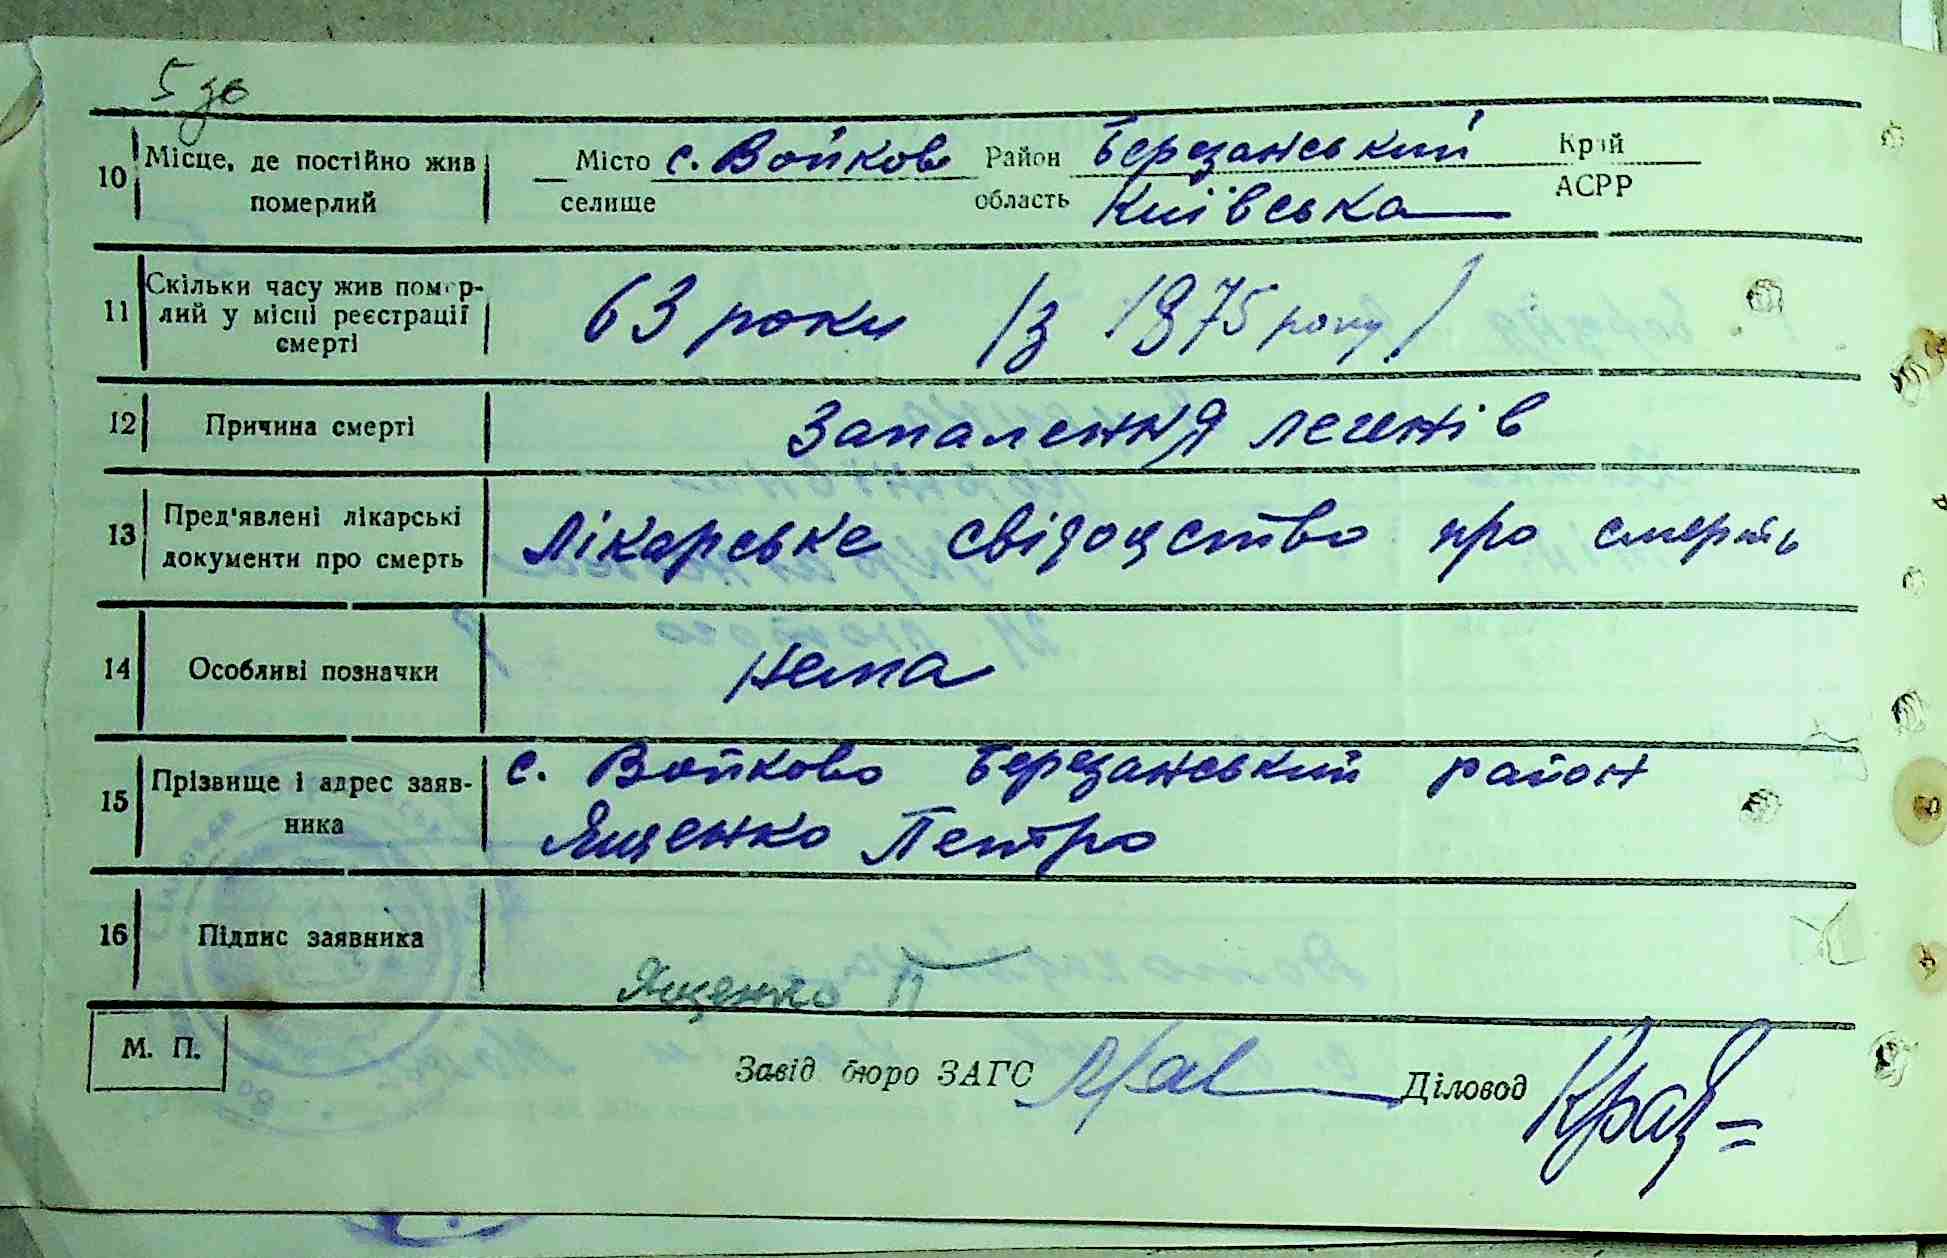 5 зв
10 Місце, де постійно жив Місто с. Войков Район Березанський Край
померлий селище область Київська АСРР
11 Скільки часу жив помер-
лий у місці реєстрації 63 роки /з 1875 року/
смерті
12 Причина смерті Запалення легенів
13 Пред'явлені лікарські
документи про смерть Лікарське свідоцство про смерть
14 Особливі позначки нема
15 Прізвище і адрес заяв- с. Войково Березанський район
ника Ященко Петро
16 Підпис заявника Ященко П
М. П. Завід бюро ЗАГС Діловод